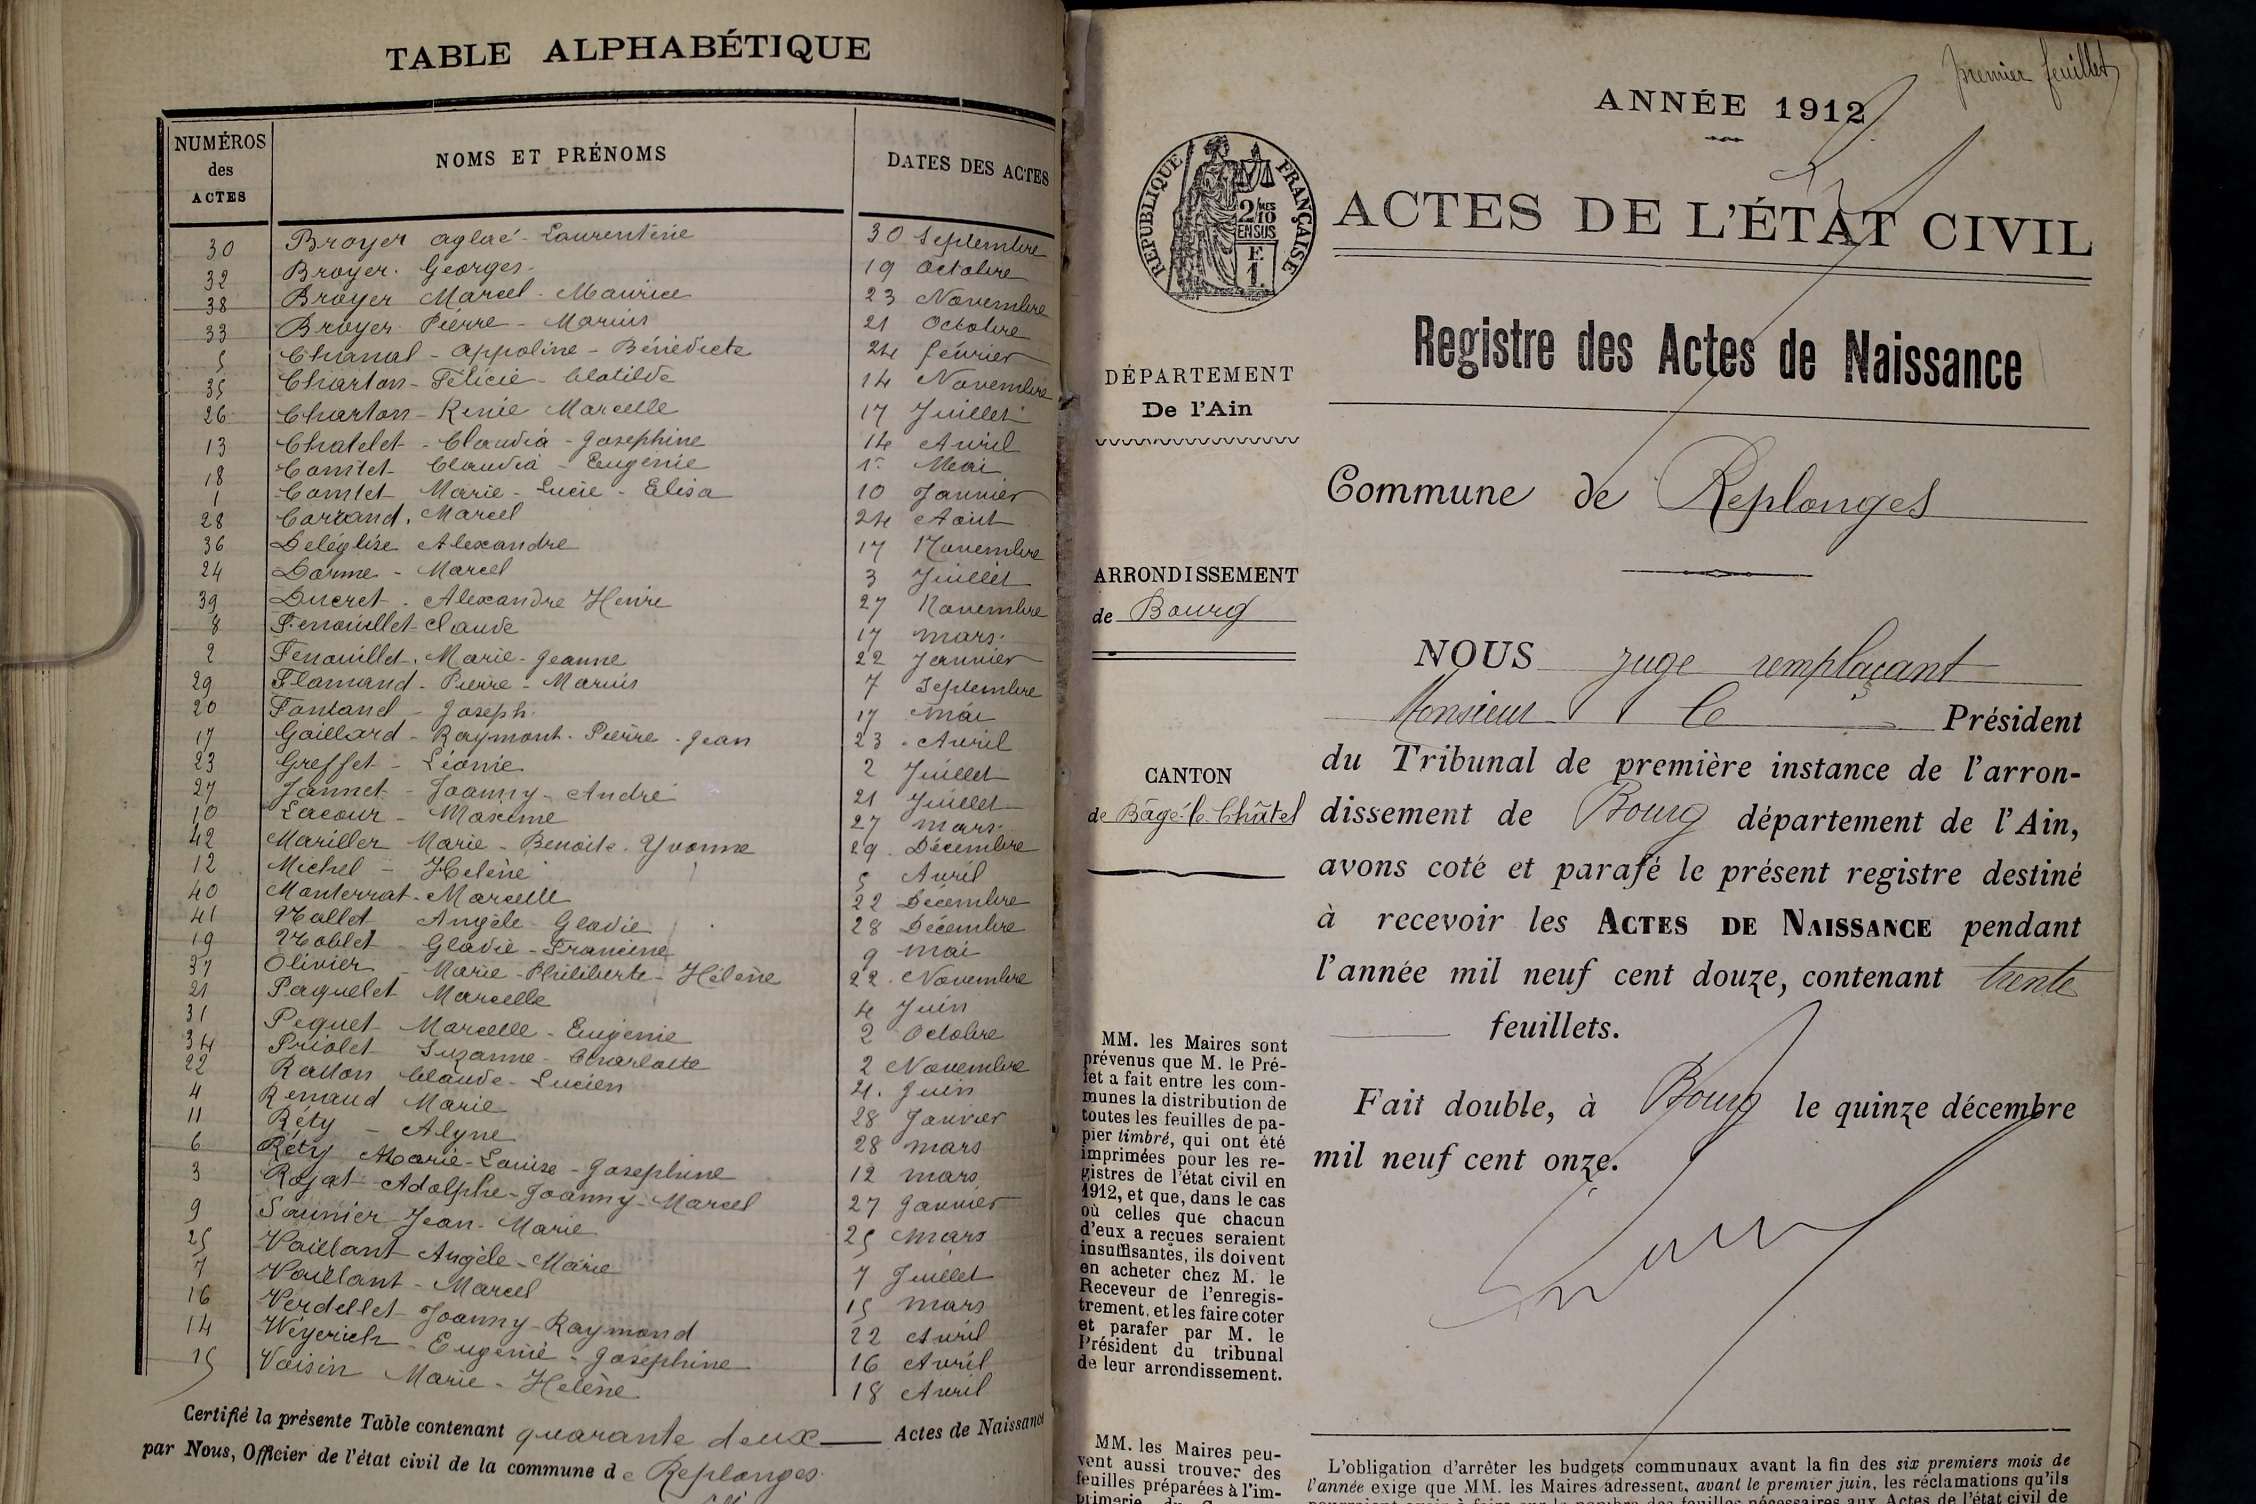 TABLE ALPHABÉTIQUE
NUMÉROS des ACTES NOMS ET PRÉNOMS DATES DES ACTES
30 Broyer Aglaé - Laurentine 30 Septembre
32 Broyer. Georges. 19 Octobre
38 Broyer Marcel - Maurice 23 Novembre
33 Broyer Pierre - Marius 21 Octobre
5 Chanal - Appoline - Bénédicte 24 février
35 Charton - Félicie - Clotilde 14 Novembre
26 Charton - Renée Marcelle 17 Juillet
13 Chatelet - Claudia - Josephine 14 Avril
18 Comtet - Claudia - Eugénie 1er Mai
1 Comtet Marie - Lucie - Elisa 10 Janvier
28 Corrand. Marcel 24 Août
36 Deléglise Alexandre 17 Novembre
24 Dorme - Marcel 3 Juillet
39 Ducret. Alexandre Henri 27 Novembre
8 Fenouillet Claude 17 mars.
2 Fenouillet. Marie - Jeanne 22 Janvier
29 Flamand - Pierre - Marius 7 Septembre
20 Fontanel - Joseph. 17 Mai
17 Gaillard - Raymont - Pierre - Jean 23 Avril
23 Greffet - Léonie 2 Juillet
27 Jannet - Joanny - André 21 Juillet
10 Lacour - Maxime 27 mars
42 Mariller Marie - Benoite. Yvonne 29 Décembre
12 Michel - Helène 5 Avril
40 Monterrat - Marcelle 22 Décembre
41 Nallet Angèle - Gladie 28 Décembre
19 Noblet - Gladie - Francine 9 mai
37 Olivier - Marie - Philiberte - Hélène 22 Novembre
21 Paquelet Marcelle 4 Juin
31 Pequet - Marcelle - Eugénie 2 Octobre
34 Priolet Suzanne - Charlotte 2 Novembre
22 Ratton Claude - Lucien 21. Juin
4 Renaud Marie 28 Janvier
11 Réty - Alyne 28 mars
6 Réty Marie - Louise - Josephine 12 mars
3 Rojat - Adolphe - Joanny - Marcel 27 Janvier
9 Saunier Jean - Marie 25 Mars
25 Vaillant Angèle - Marie 7 Juillet
7 Vaillant - Marcel 15 mars
16 Verdellet - Joanny - Raymond 22 Avril
14 Wéyerich - Eugénie - Joséphine 16 Avril
15 Voisin Marie - Helène 18 Avril
Certifié la présente Table contenant quarante deux Actes de Naissance
par Nous, Officier de l'état civil de la commune de Replonges
premier feuillet
ANNÉE 1912
RÉPUBLIQUE FRANÇAISE
2/10MES
EN SUS
F.
1.
ACTES DE L'ÉTAT CIVIL
Registre des Actes de Naissance
DÉPARTEMENT
De l'Ain
Commune de Replonges
ARRONDISSEMENT
de Bourg
CANTON
de Bâgé-le-Châtel
NOUS juge remplaçant
Monsieur le Président
du Tribunal de première instance de l'arron-
dissement de Bourg département de l'Ain,
avons coté et parafé le présent registre destiné
à recevoir les ACTES DE NAISSANCE pendant
l'année mil neuf cent douze, contenant trente
feuillets.
Fait double, à Bourg le quinze décembre
mil neuf cent onze.
MM. les Maires sont
prévenus que M. le Pré-
fet a fait entre les com-
munes la distribution de
toutes les feuilles de pa-
pier timbré, qui ont été
imprimées pour les re-
gistres de l'état civil en
1912, et que, dans le cas
où celles que chacun
d'eux a reçues seraient
insuffisantes, ils doivent
en acheter chez M. le
Receveur de l'enregis-
trement, et les faire coter
et parafer par M. le
Président du tribunal
de leur arrondissement.
MM. les Maires peu-
vent aussi trouver des
feuilles préparées à l'im-
primerie du
L'obligation d'arrêter les budgets communaux avant la fin des six premiers mois de
l'année exige que MM. les Maires adressent, avant le premier juin, les réclamations qu'ils
pourraient avoir à faire sur le nombre des feuilles nécessaires aux Actes de l'état civil de